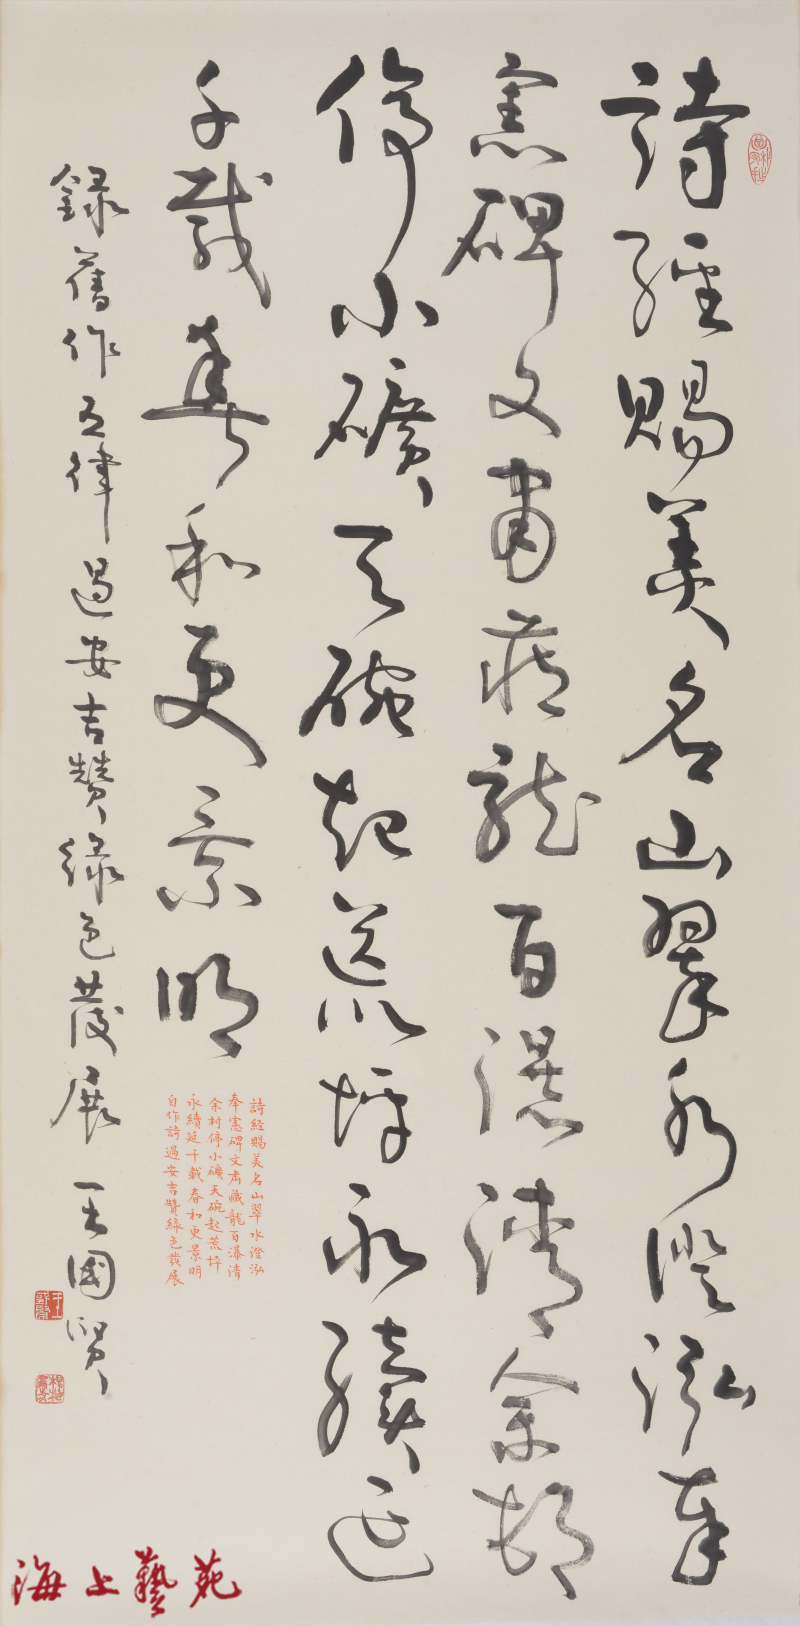 詩經賜美名山翠水澄泓奉
憲碑文肅藏龍百瀑清余村
停小礦天碗起荒坪永續延
千載春和更景明
錄舊作五律過安吉贊綠色發展 王國賢
詩經賜美名山翠水澄泓
奉憲碑文肅藏龍百瀑清
余村停小礦天碗起荒坪
永續延千載春和更景明
自作詩過安吉贊綠色發展
海上藝苑